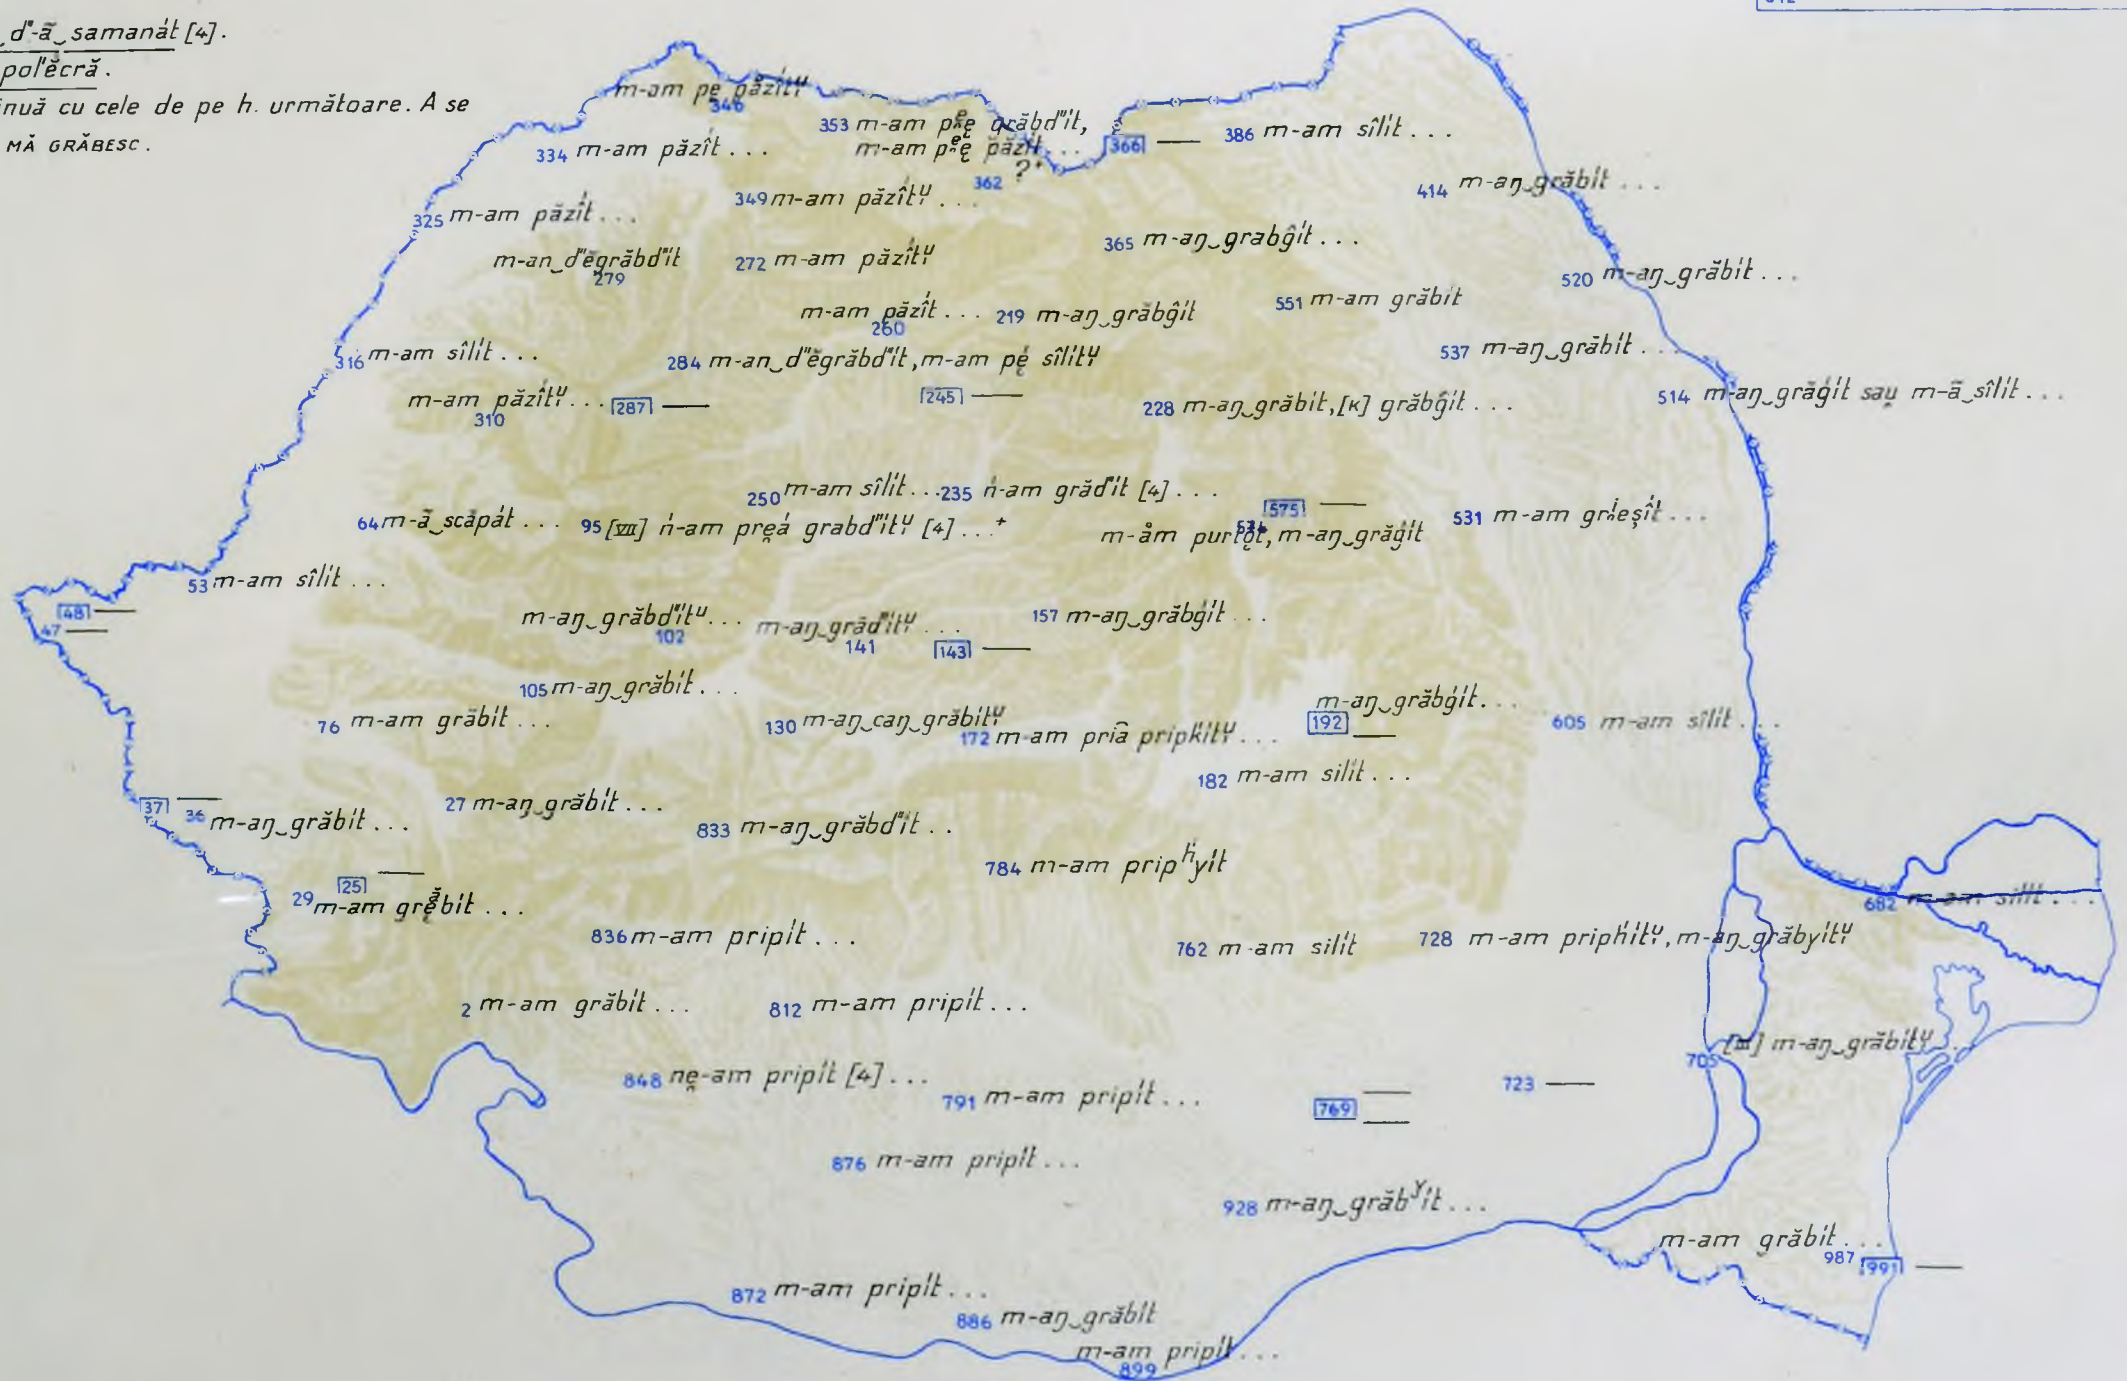 d"-ã‿samanát [4].
pol'ĕcră.
nuă cu cele de pe h. următoare. A se
MĂ GRĂBESC.
m-am pe̦ păzî́tᵘ̯
346
353 m-am grăbd"ít,
m-am păzî́t...
334 m-am păzî́t...
[366] —
386 m-am sîlít...
362 ?⁺
414 m-aŋ‿grăbít...
325 m-am păzî́t...
349 m-am păzî́tᵘ̯...
365 m-aŋ‿grabĝít...
m-an‿d"ĕgrăbd"ít
279
272 m-am păzî́tᵘ̯
520 m-aŋ‿grăbít...
m-am păzî́t...
260
219 m-aŋ‿grăbĝít
551 m-am grăbít
316 m-am sîlít...
284 m-an‿d"ĕgrăbd"ít, m-am pe̦ sîlítᵘ̯
537 m-aŋ‿grăbít...
m-am păzî́tᵘ̯...
310
[287] —
[245] —
228 m-aŋ‿grăbít, [K] grăbĝít...
514 m-aŋ‿grăǵít sau̯ m-ã‿sîlít...
250 m-am sîlít...
235 ń-am grăd'ít [4]...
[575] —
64 m-ã‿scăpát...
95 [VII] ń-am pre̯á grabd"ítᵘ̯ [4]...⁺
m-åm m-aŋ‿grăǵít
531 m-am
53 m-am sîlít...
[48] —
47 —
m-aŋ‿grăbd"ítᵘ...
102
m-aŋ‿grăd"ítᵘ̯...
141
[143] —
157 m-aŋ‿grăbǵít...
105 m-aŋ‿grăbít...
76 m-am grăbít...
130 m-aŋ‿caŋ‿grăbítᵘ̯
172 m-am priâ pripḱítᵘ̯...
m-aŋ‿grăbǵít...
[192] —
605 m-am sîlít...
182 m-am silít...
[37] —
36 m-aŋ‿grăbít...
27 m-aŋ‿grăbít...
833 m-aŋ‿grăbd"ít..
784 m-am pripʰ́yít
[25] —
29 m-am grӗ̦bít...
682 m-am silít...
836 m-am pripít...
762 m-am silít
728 m-am priph́ítᵘ̯, m-aŋ‿grăbyítᵘ̯
2 m-am grăbít...
812 m-am pripít...
705 [III] m-aŋ‿grăbítᵘ̯
848 ne̯-am pripít [4]...
791 m-am pripít...
[769] —
—
723 —
876 m-am pripít...
928 m-aŋ‿grăbʸít...
m-am grăbít...
987
[991] —
872 m-am pripít...
886 m-aŋ‿grăbít
m-am pripít...
899